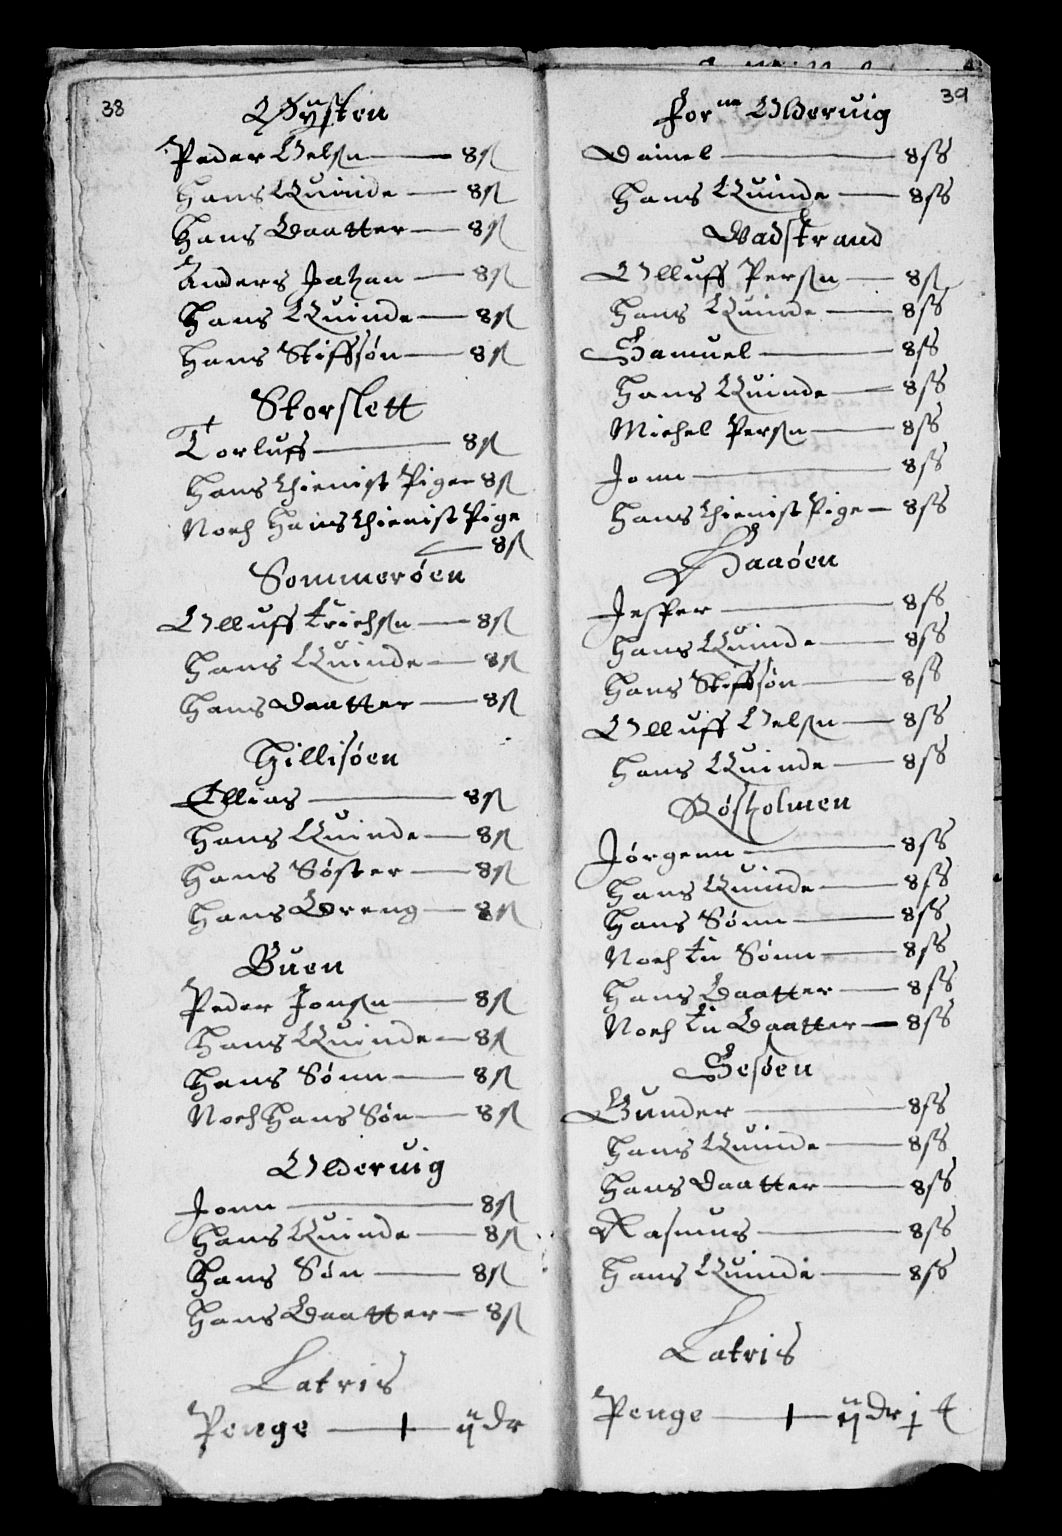 38
Gysten
Peder Oelsn — 8 ß
Hans Quinde — 8 ß
Hans Daatter — 8 ß
Anders Jahan — 8 ß
Hans Quinde — 8 ß
Hans Stiffsøn — 8 ß
Storslett
Torluff — 8 ß
Hans thienist Pige 8 ß
Noch Hans thienist Pige
— 8 ß
Sommerøen
Olluff Erichsn — 8 ß
Hans Quinde — 8 ß
Hans Daatter — 8 ß
Hillisøen
Ellias — 8 ß
Hans Quinde — 8 ß
Hans Søster — 8 ß
Hans Dreng — 8 ß
Buen
Peder Jonsn — 8 ß
Hans Quinde — 8 ß
Hans Sønn — 8 ß
Noch Hans Søn — 8 ß
Olderuig
Jonn — 8 ß
Hans Quinde — 8 ß
Hans Søn — 8 ß
Hans Daatter — 8 ß
Latris
Penge — ij dr
39
forne Olderuig
Dainel — 8 ß
Hans Quinde — 8 ß
Vadstrand
Olluff Persn — 8 ß
Hans Quinde — 8 ß
Samuel — 8 ß
Hans Quinde — 8 ß
Michel Persn — 8 ß
Jonn — 8 ß
Hans thienist Pige — 8 ß
Haaøen
Jesper — 8 ß
Hans Quinde — 8 ß
Hans Stiffsøn — 8 ß
Olluff Oelsn — 8 ß
Hans Quinde — 8 ß
Røsholmen
Jørgenn — 8 ß
Hans Quinde — 8 ß
Hans Sønn — 8 ß
Noch En Sønn — 8 ß
Hans Daatter — 8 ß
Noch En Daatter — 8 ß
Sesøen
Gunder — 8 ß
Hans Quinde — 8 ß
Hans Daatter — 8 ß
Rasmus — 8 ß
Hans Quinde — 8 ß
Latris
Penge — ij dr j